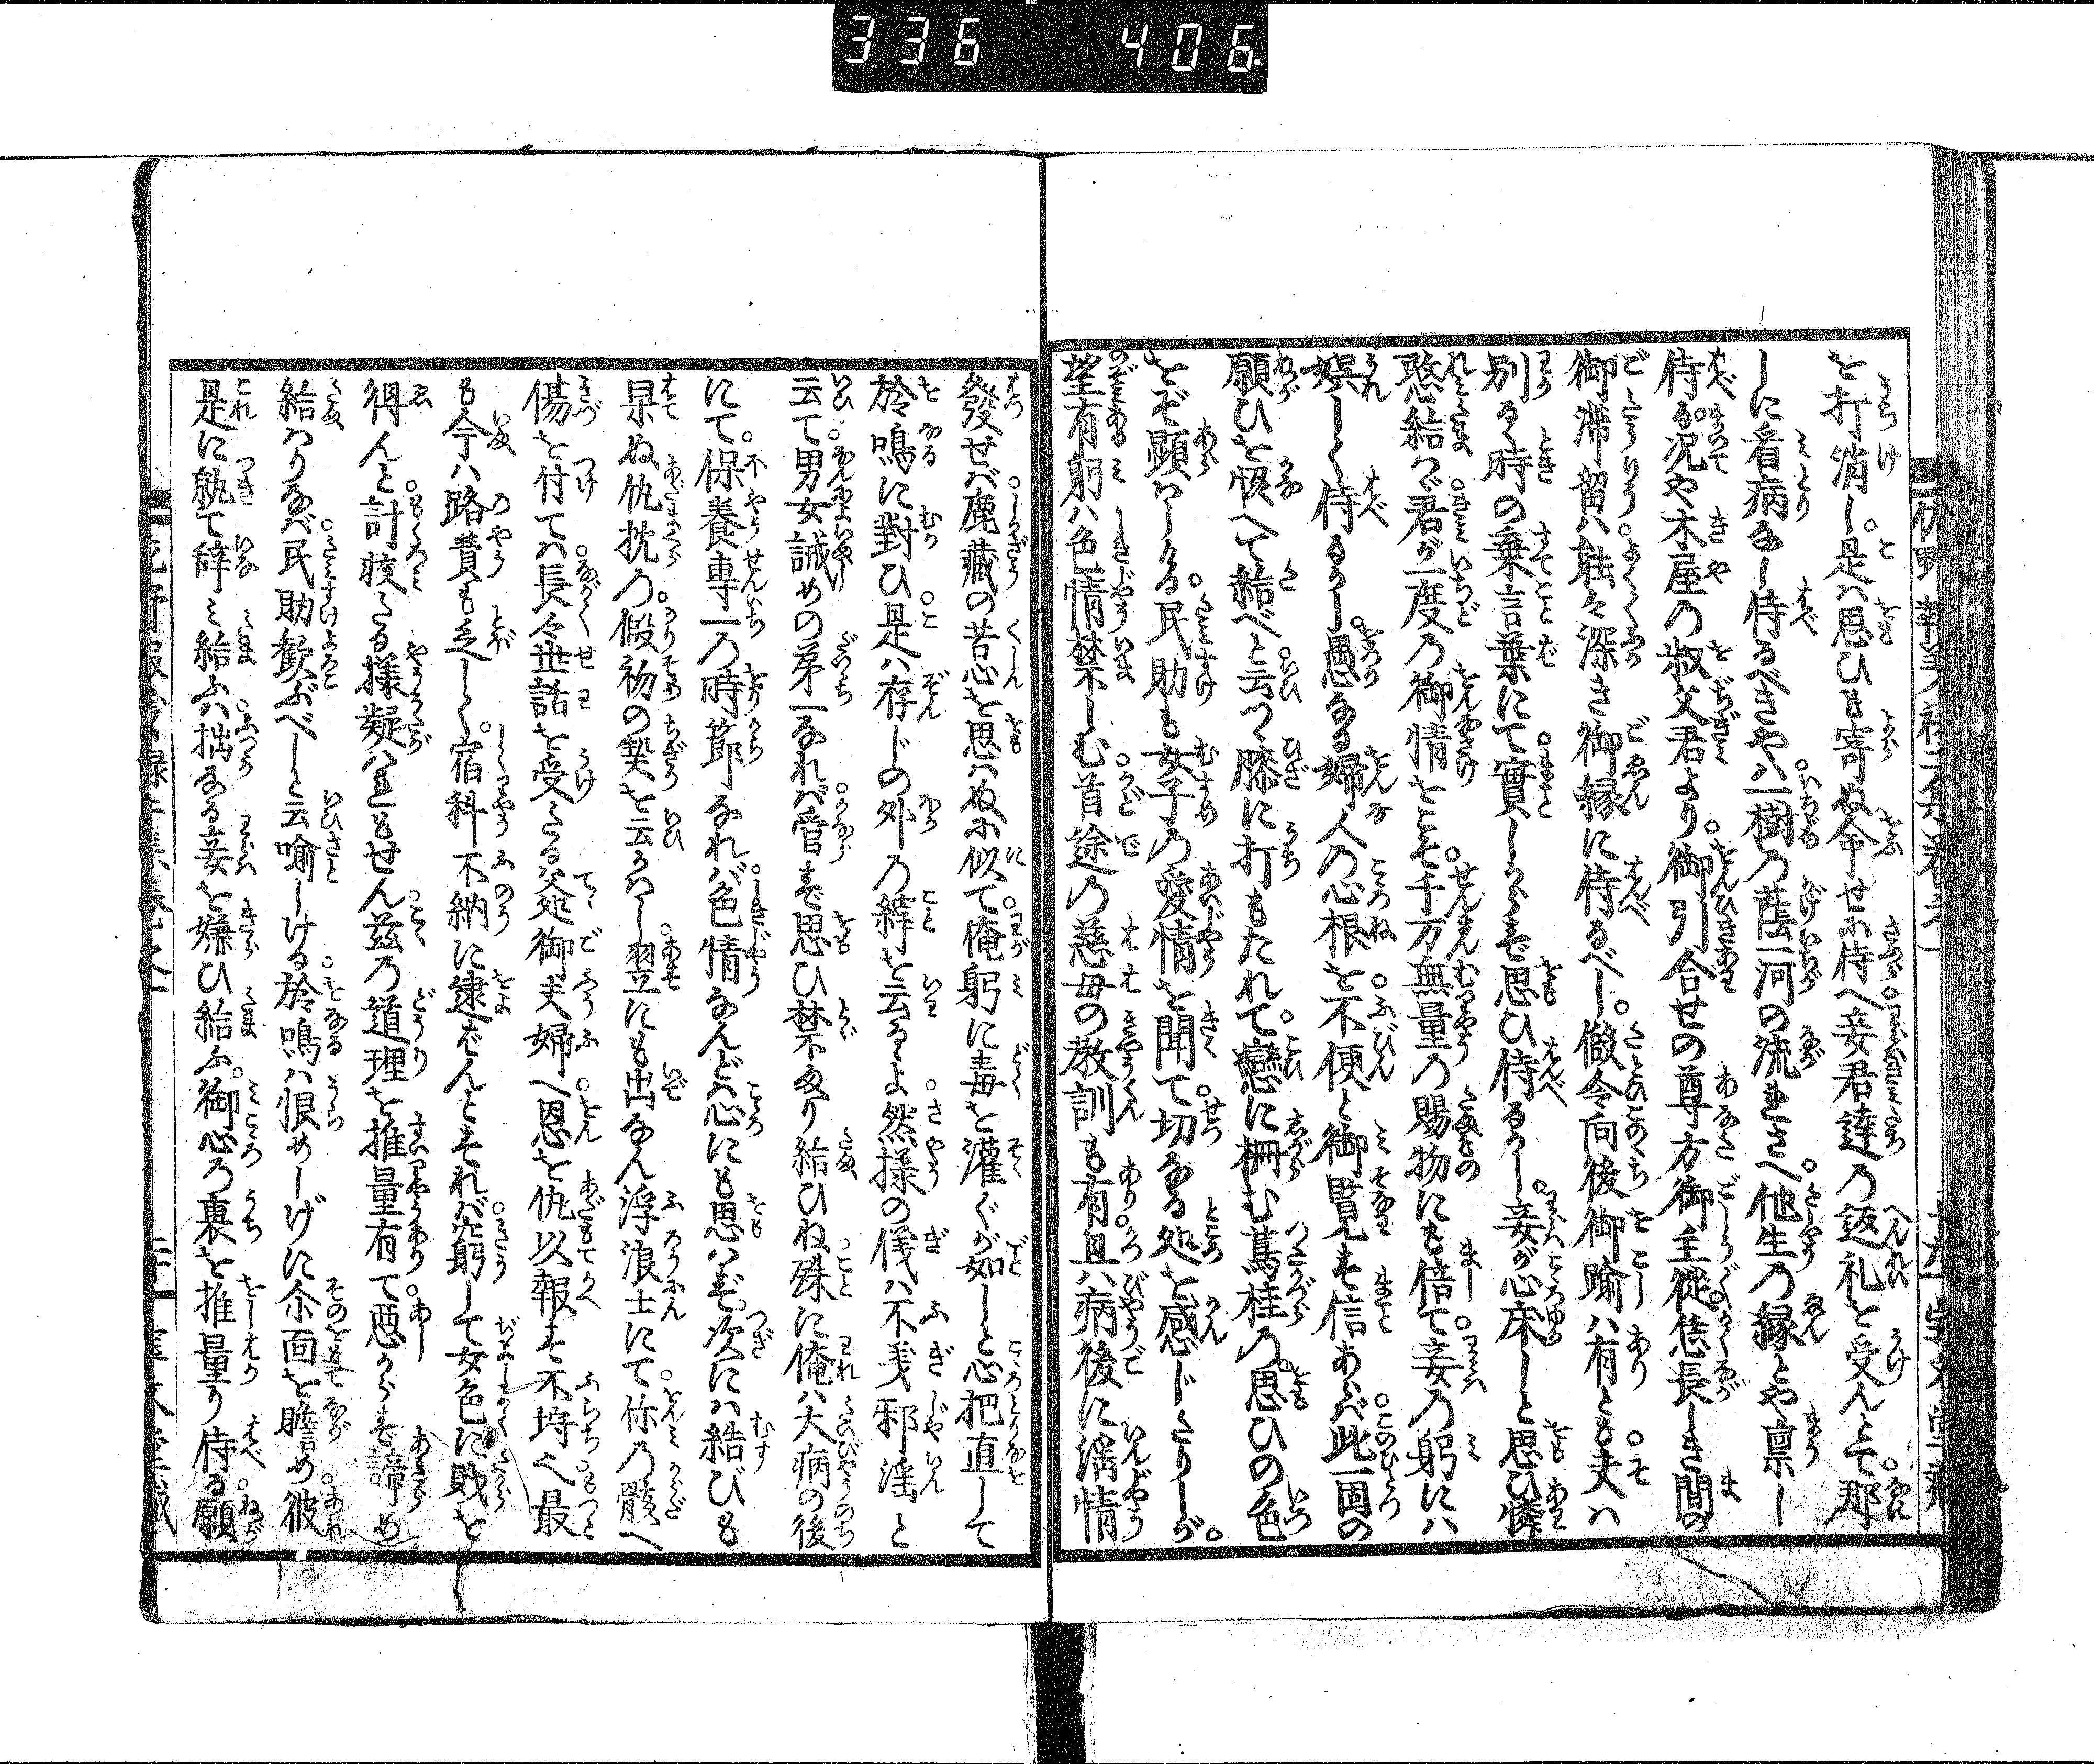 336 406
を打消し。是ハ思ひも寄ぬ命せふ侍へ妾君達の返礼を受んとて那
しに看病なし侍るべきや。一樹の蔭一河の流まさへ。他生の縁とや稟し
侍る。況や木屋の叔父君より。御引合せの尊方御主從。恁長しき間の
御滞留ハ。能々深き御縁に侍るべし。假令向後御喩ハ有とも。夫ハ
別るゝ時の棄言葉にて。實しからず思ひ侍るかし。妾が心床しと思ひ憐
愍給ハヾ。君が一度の御情をこそ。千万無量の賜物にも倍て。妾の躬にハ
娯しく侍るかし。愚なる婦人の心根を。不便と御覧じ信あらバ。此一回の
願ひを恢へて給べと。云つゝ膝に打もたれて。戀に柵む蔦桂の思ひの色
をぞ顕ハしける。民助も女子の愛情を聞て。切なる処を感じたりしが。
望有躬ハ色情禁しむ。首途の慈母の教訓も有。且ハ病後に淫情
發せバ。鹿藏の苦心を思ハぬふ似て。俺躬に毒を灌ぐが如しと。心把直して
於鳴に對ひ。是ハ存じの外の縡を云るゝよ。然様の儀ハ不義邪淫と
云て。男女誡めの第一なれバ。管ず思ひ禁まり給ひね。殊に俺ハ大病の後
にて。保養専一の時莭なれバ。色情なんどハ心にも思ハぞ。次にハ結びも
果ぬ仇枕の。假初の契を云かハし。翌にも出なん浮浪士にて。你の骸へ
傷を付てハ。長々世話を受たる爺御夫婦へ。恩を仇以報ず不埓。最
も今ハ路費も乏しく。宿料不納に逮ばんとすれバ。窮躬して女色に貲を
得んと。計較たる様疑ハれもせん。茲の道理を推量有て。悪からず諦め
給ハりなバ。民助歓ぶべしと云喻しける。於鳴ハ恨めしげに尒面を瞻め。彼
是に孰て辞み給ふハ。拙なる妾を嫌ひ給ふ。御心の裏を推量り侍る。願